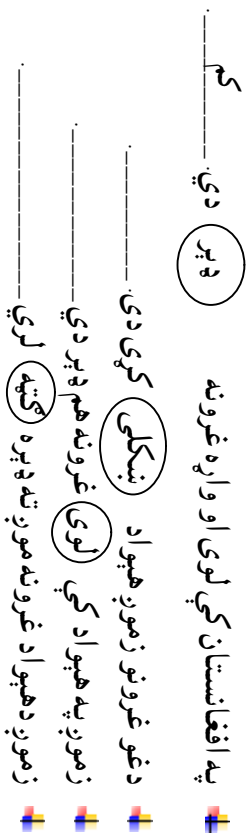 په افغانستان کې لوی او واړه غرونه ډېر دي. ---------- کم ----------.
دغو غرونو زموږ هېواد ښکلی کړی دی. ----------------.
زموږ په هېواد کې لوی غرونه هم ډېر دي --------------------.
زموږ د هېواد غرونه موږ ته ډېره ګټه لري --------------------------.